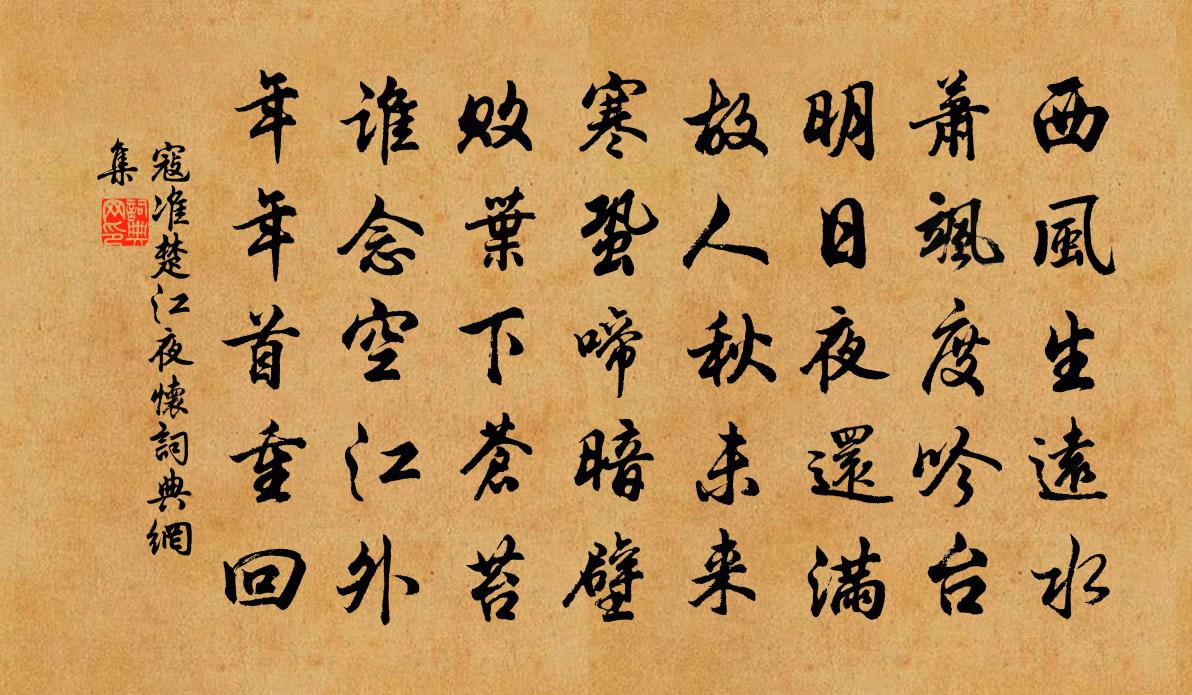 西風生遠水
蕭颯度吟台
明日夜還滿
故人秋未来
寒蛩啼暗壁
敗葉下蒼苔
誰念空江外
年年首重回
寇准楚江夜懷詞典網
集
詞典
网印